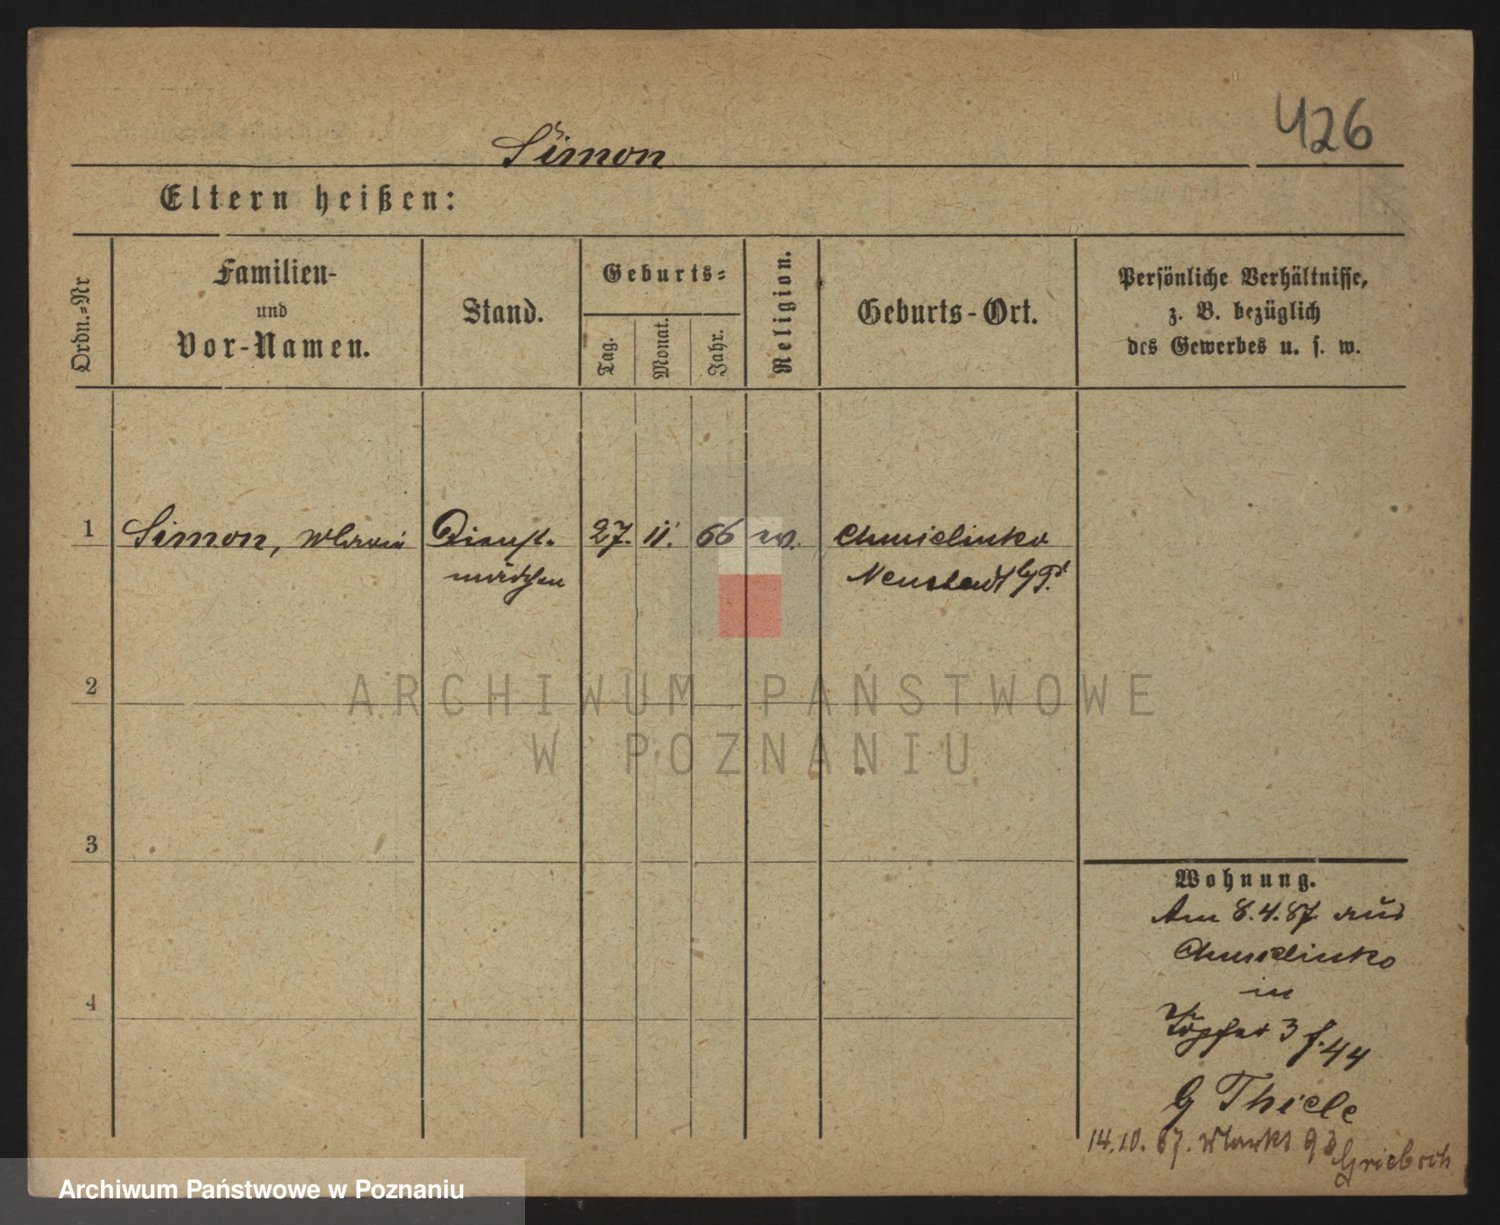 426
Simon
Eltern heißen:
Ordn.-Nr
Familien-
und
Vor-Namen.
Stand.
Geburts-
Tag.
Monat.
Jahr.
Religion.
Geburts-Ort.
Persönliche Verhältnisse,
z. B. bezüglich
des Gewerbes u. s. w.
1 Simon, Dienst- 27. 11. 66 Chmielinko
mädchen Neustadt
2
ARCHIWUM PAŃSTWOWE
W POZNANIU
3
Wohnung.
Am 8.4.87 aus
Chmielinko
in
4
Töpfer 3 f. 44
G Thiele
14.10.87. Markt
Archiwum Państwowe w Poznaniu